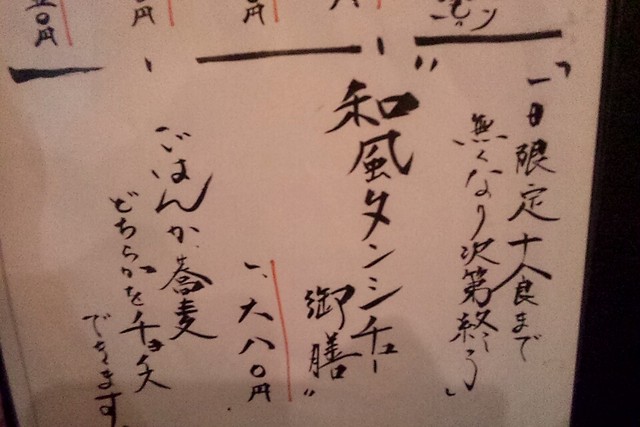 円
円
五〇円
「一日限定十食まで
無くなり次第終了」
"和風タンシチュー
御膳"
一、六八〇円
ごはんか蕎麦
どちらかをチョイス
できます